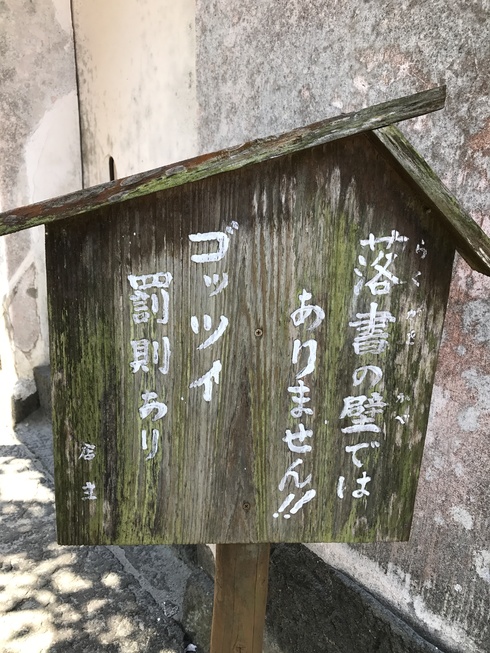 落書の壁では
ありません!!
ゴッツイ
罰則あり
店主